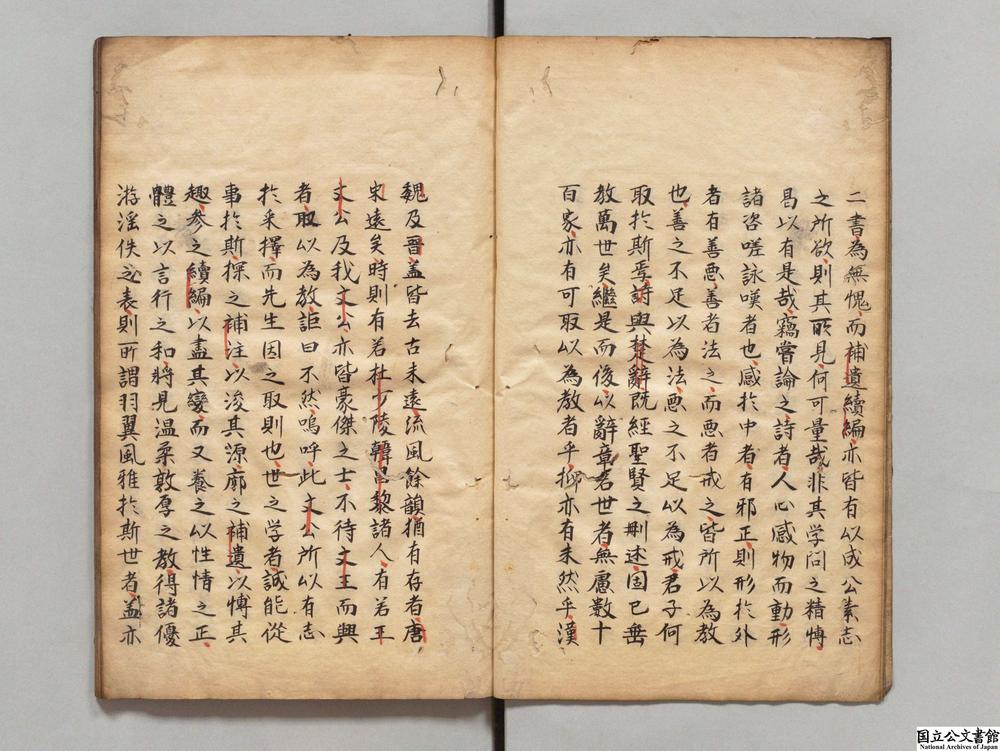 二書為無愧而補遺續編亦皆有以成公素志
之所欲則其所見何可量哉非其学問之精博
曷以有是哉竊嘗論之詩者人心感物而動形
諸咨嗟詠嘆者也感於中者有邪正則形於外
者有善悪善者法之而悪者戒之皆所以為教
也善之不足以為法悪之不足以為戒君子何
取於斯焉詩與楚辭既經聖賢之刪述固已垂
教萬世矣繼是而後以辭章名世者無慮数十
百家亦有可取以為教者乎抑亦有未然乎漢
魏及晋盖皆去古未遠流風餘韻猶有存者唐
宋遠矣時則有若杜少陵韓昌黎諸人有若王
文公及我文公亦皆豪傑之士不待文王而興
者取以為教詎曰不然嗚呼此文公所以有志
於采擇而先生因之取則也世之学者誠能從
事於斯探之補注以浚其源廓之補遺以博其
趣参之續編以盡其變而又養之以性情之正
體之以言行之和將見温柔敦厚之教得諸優
游淫佚之表則所謂羽翼風雅於斯世者盖亦
国立公文書館
National Archives of Japan